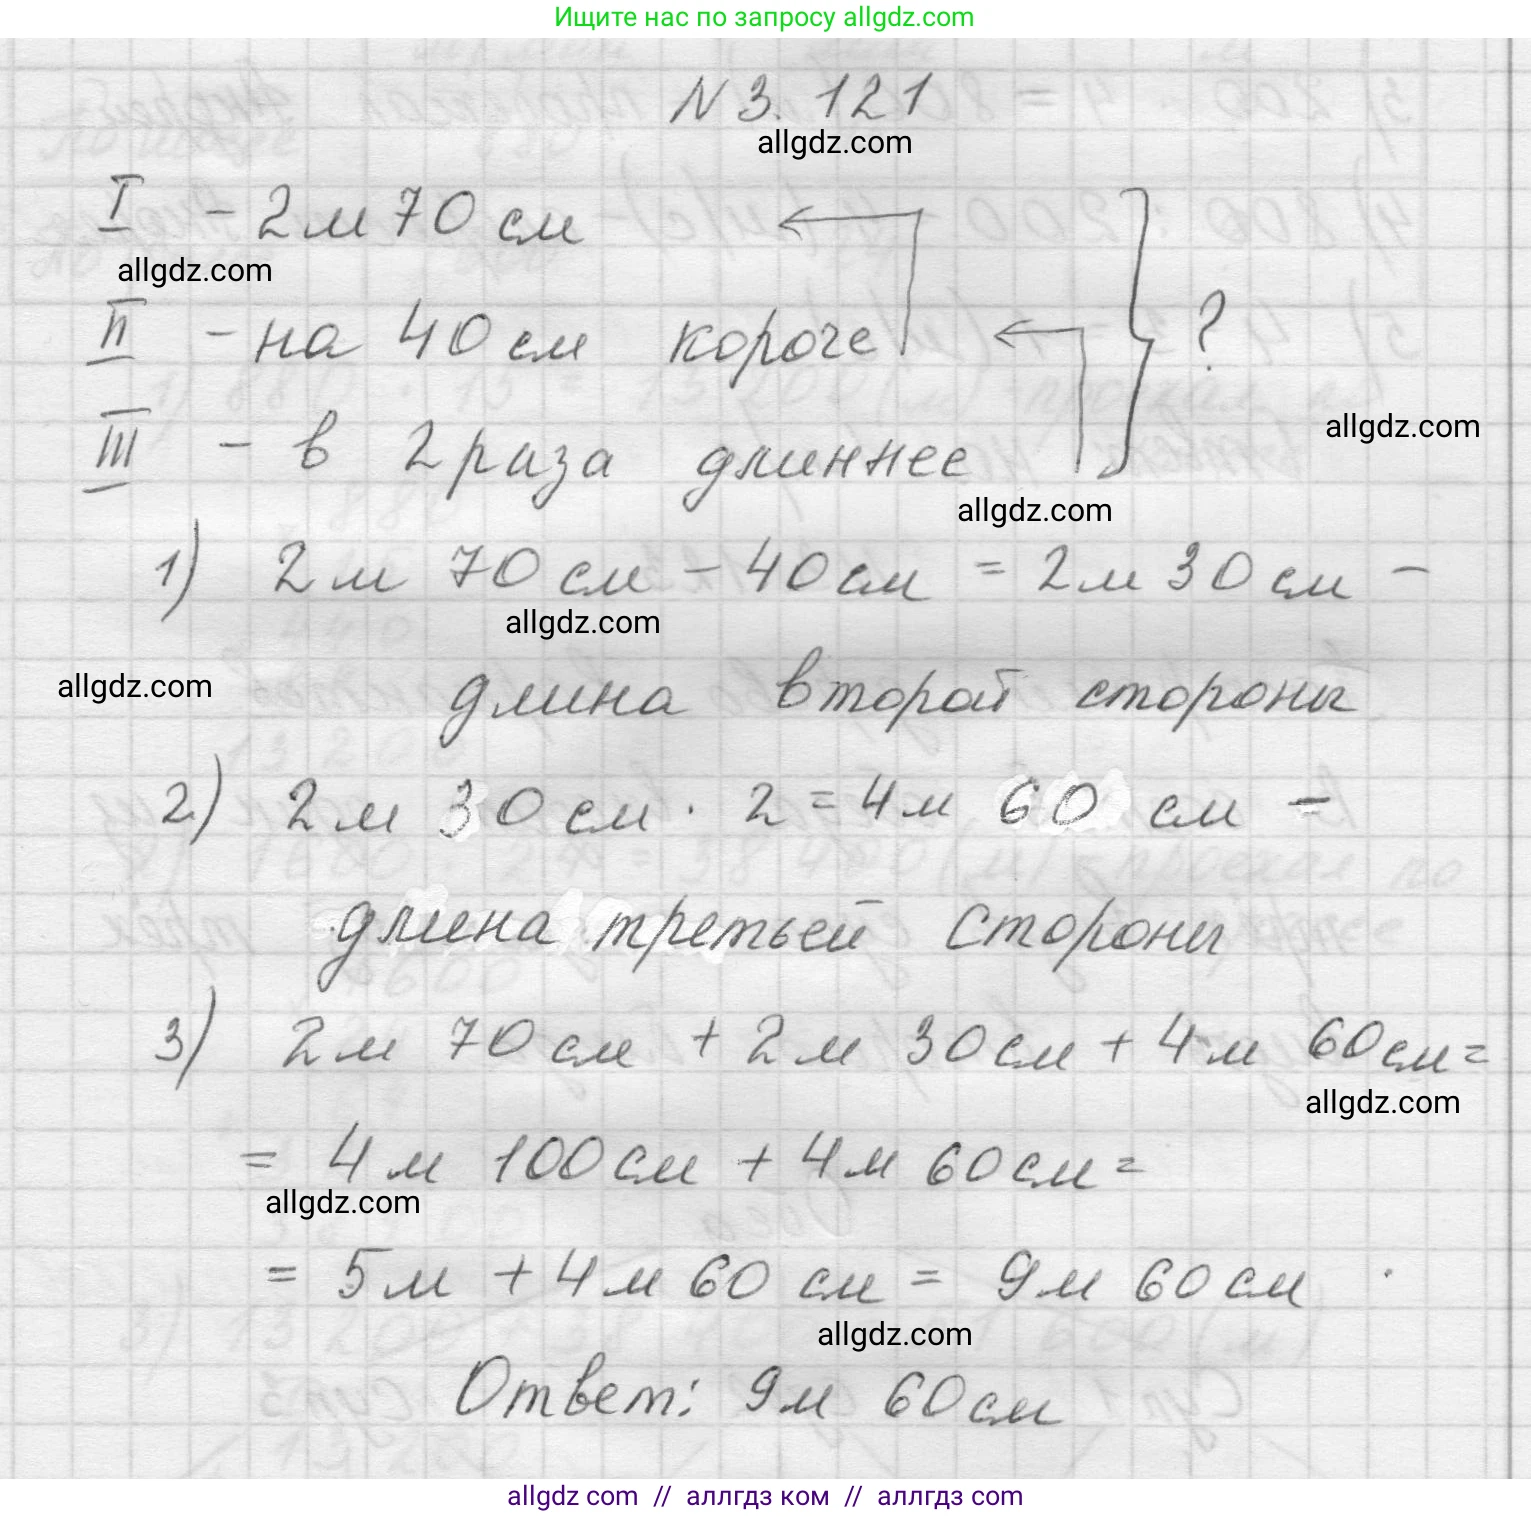 Ищите нас по запросу allgdz.com
N 3. 121
allgdz.com
I - 2 м 70 см
allgdz.com
II - на 40 см короче
?
allgdz.com
III - в 2 раза длиннее
allgdz.com
1) 2 м 70 см - 40 см = 2 м 30 см -
allgdz.com
allgdz.com
длина второй стороны
2) 2 м 30 см · 2 = 4 м 60 см -
длина третьей стороны
3) 2 м 70 см + 2 м 30 см + 4 м 60 см =
allgdz.com
= 4 м 100 см + 4 м 60 см =
allgdz.com
= 5 м + 4 м 60 см = 9 м 60 см
allgdz.com
Ответ: 9 м 60 см
allgdz com // аллгдз ком // аллгдз com